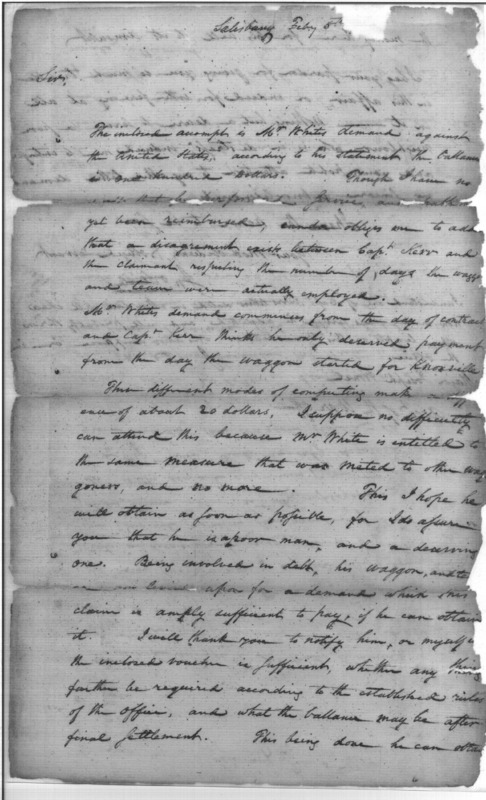 Salisbury Feby 5th
Sir,
The inclosed accompt is Mr Whites demand against
the United States, according to his statement the ballance
is one hundred Dollars. Though I have no
yet been reimbursed, candor obliges me to add
that a disagreement exists between Capt. Kerr and
the claimant respecting the number of days the waggon
and team were actually employed.
Mr Whites demand commences from the day of contract
and Capt Kerr thinks he only deserved payment
from the day the waggon started for Knoxville
These different modes of computing make a
ence of about 20 dollars, I suppose no difficulty
can attend this because Mr White is entitled to
the same measure that was meted to other wag
goners, and no more. This I hope he
will obtain as soon as possible, for I do assure
you that he is a poor man, and a deserving
one. Being involved in debt, his waggon, and
upon for a demand which this
claim is amply sufficient to pay, if he can obtain
it. I will thank you to notify him, or myself if
the inclosed voucher is sufficient, whether any thing
farther be required according to the established rules
of the office, and what the ballance may be after
final settlement. This being done he can obtain